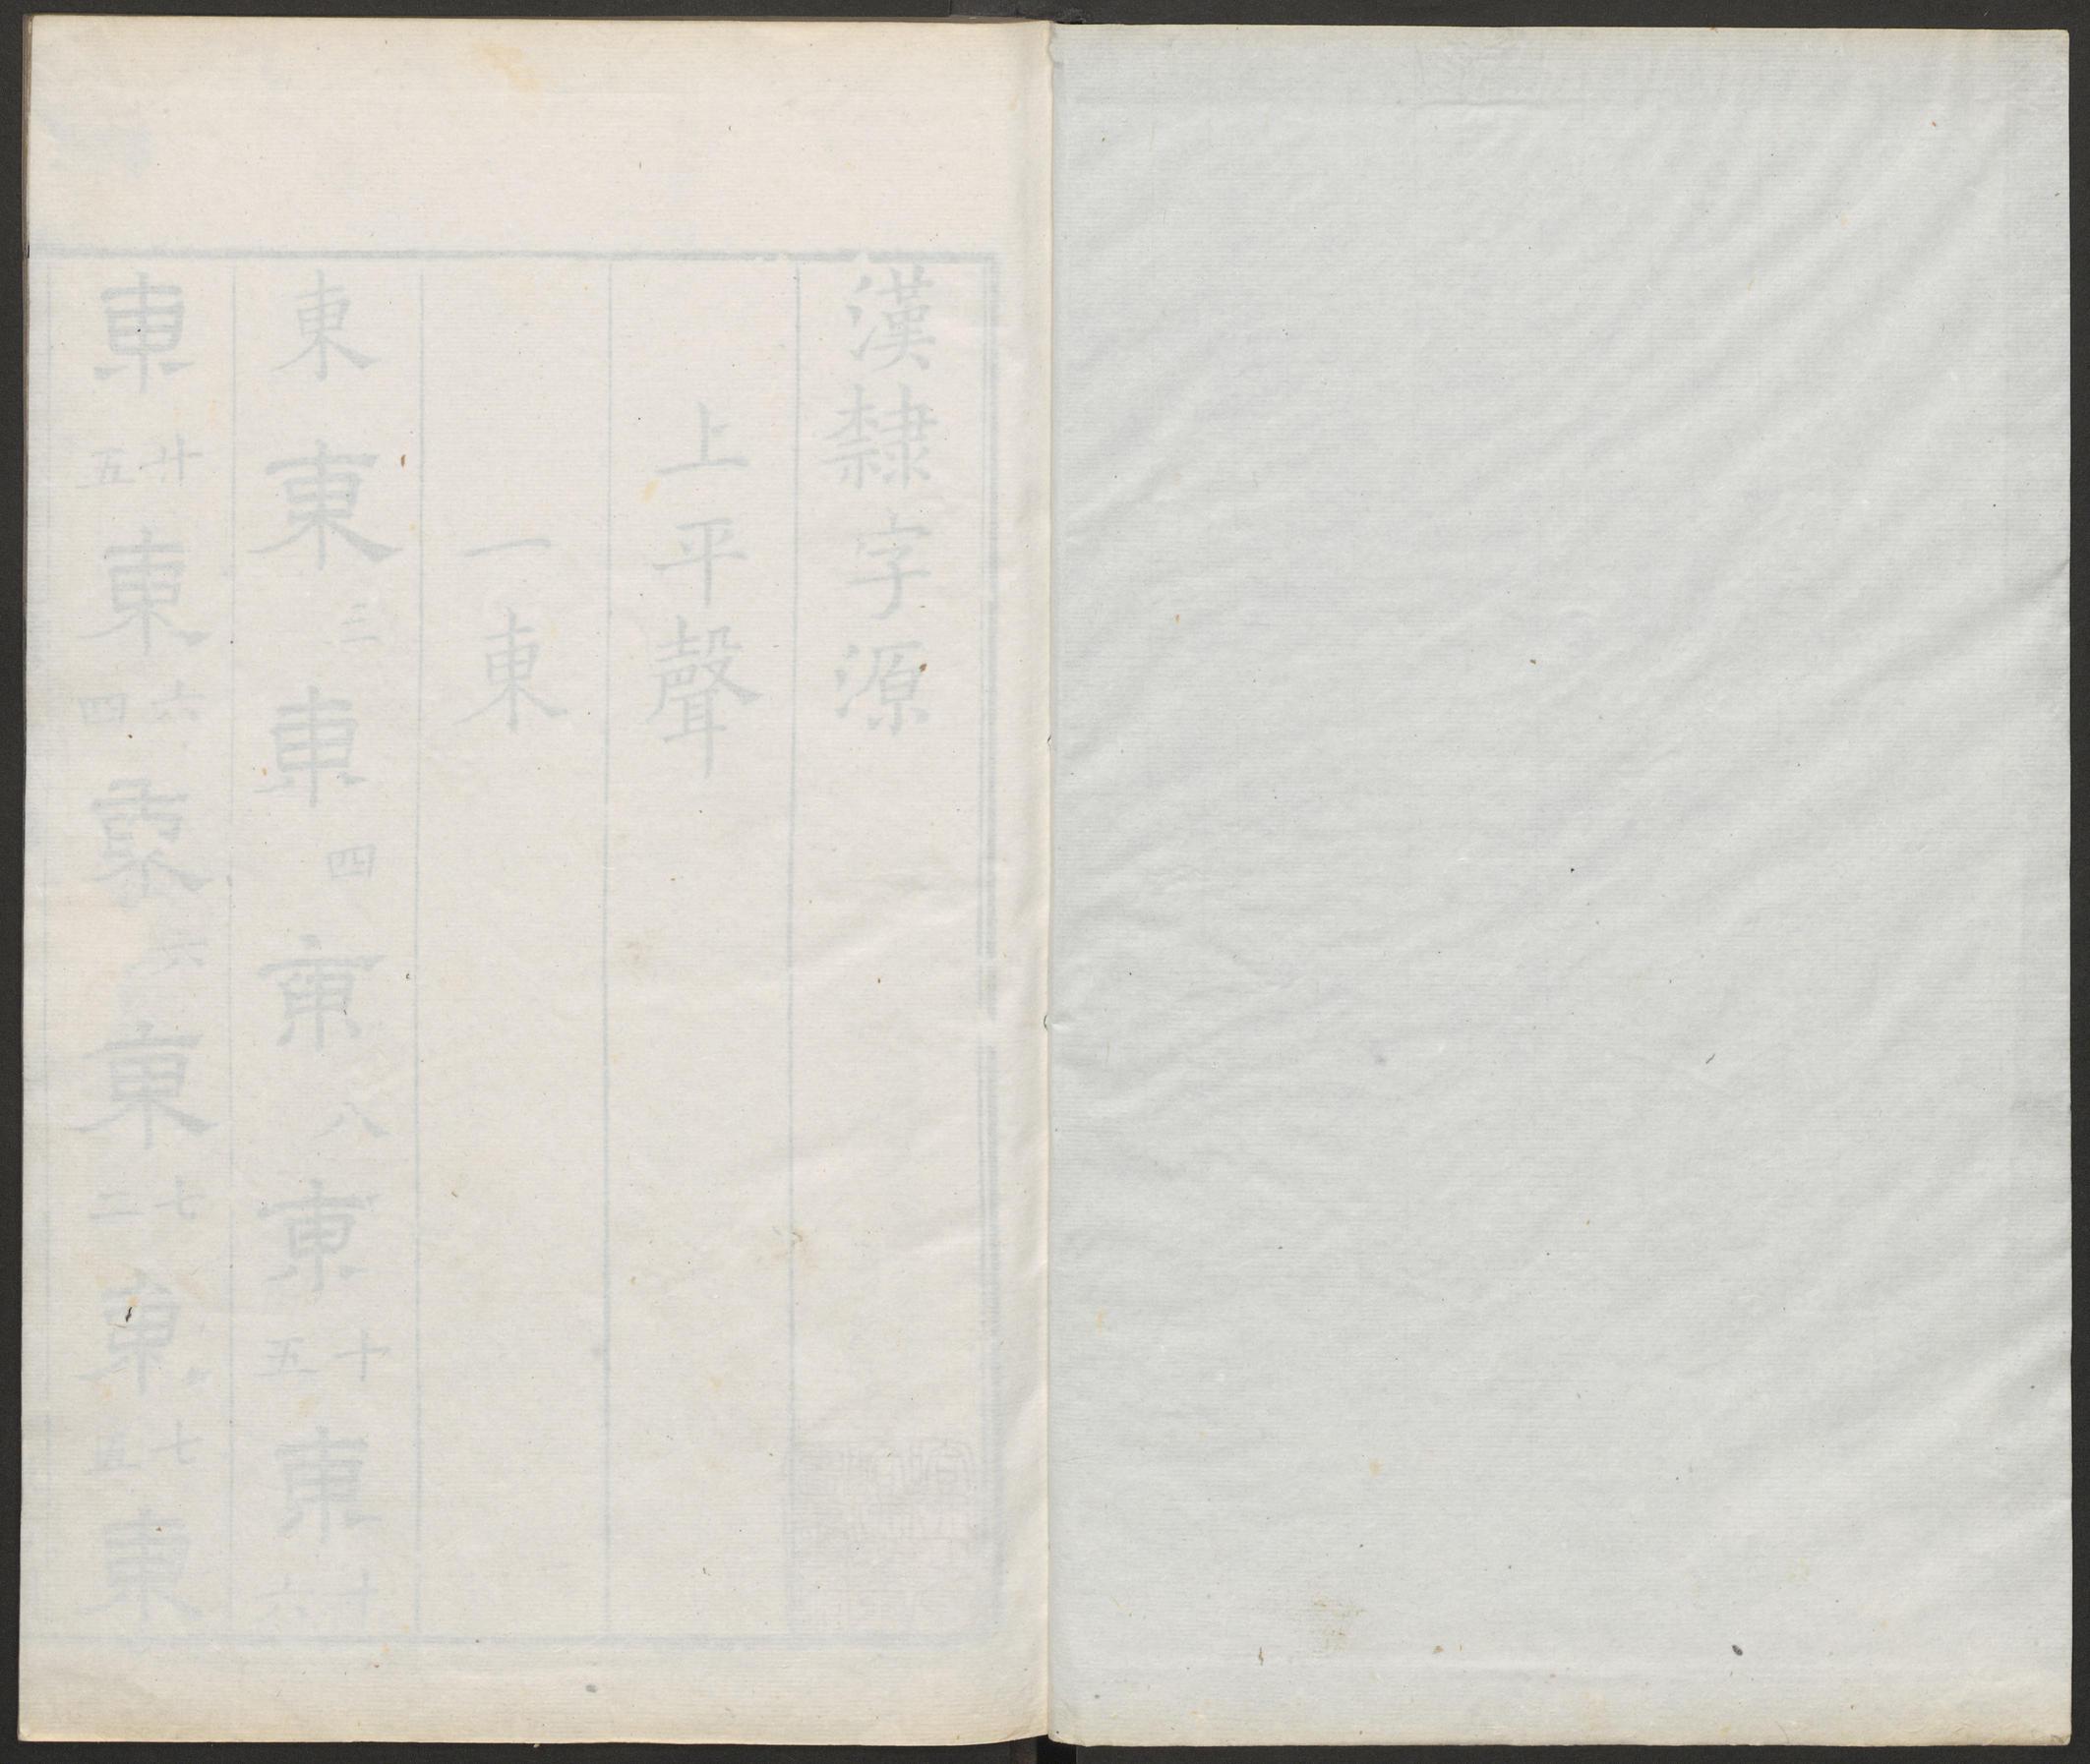 漢隸字源
上平聲
一東
東 東 三 東 四 東 八 東 十五 東 十六
東 廿五 東 六四 東 六 東 七二 東 七五 東